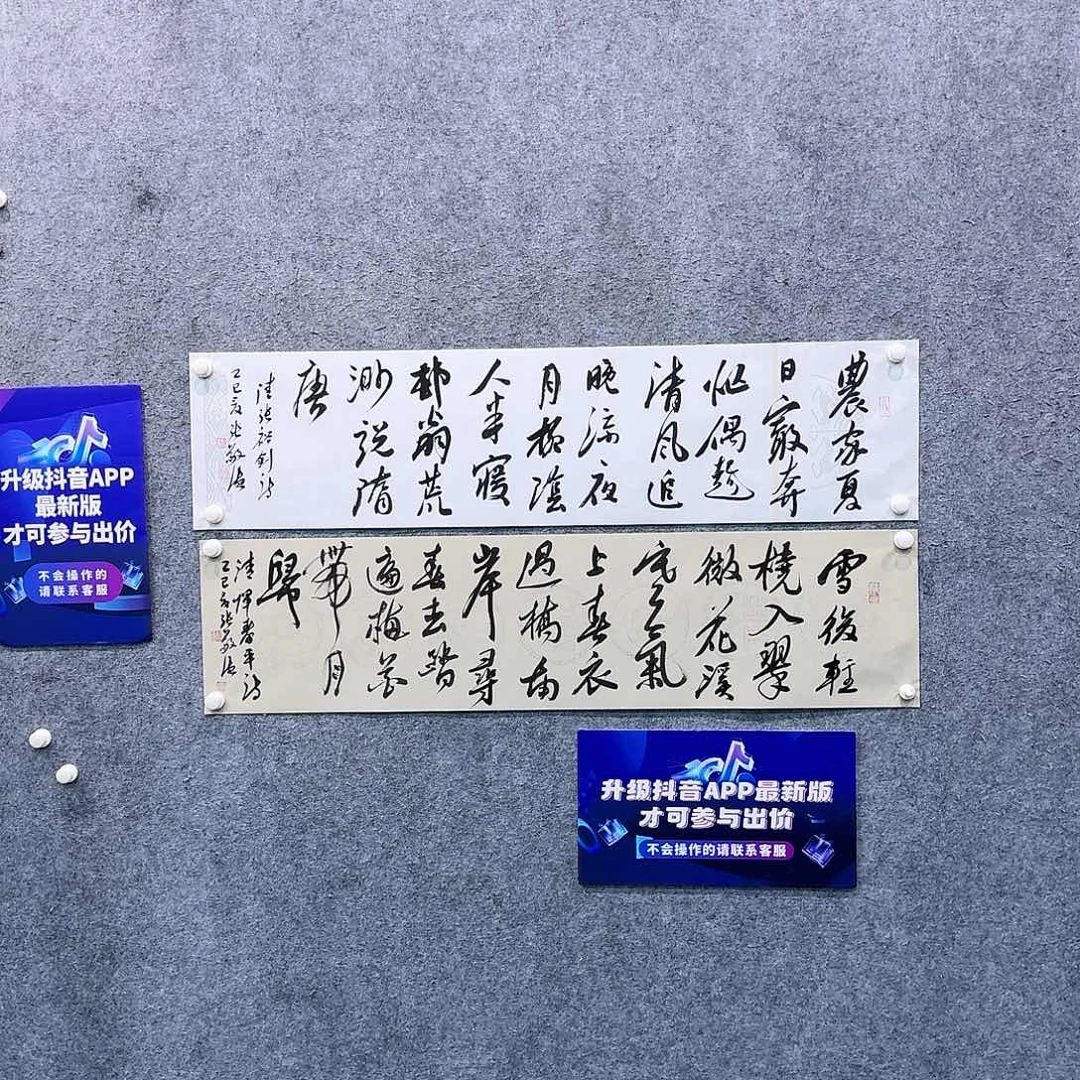 升级抖音APP
最新版
才可参与出价
不会操作的
请联系客服
農家夏
日最奔
忙偶趁
清風追
晚涼夜
月陰
人半寢
翁荒
渺說隋
唐
清張裕釗詩
乙巳
雪後輕
橈入翠
微花溪
寒氣
上春衣
過橋南
岸尋
春去踏
遍梅花
帶月
歸
清惲壽平詩
乙巳
升级抖音APP最新版
才可参与出价
不会操作的请联系客服